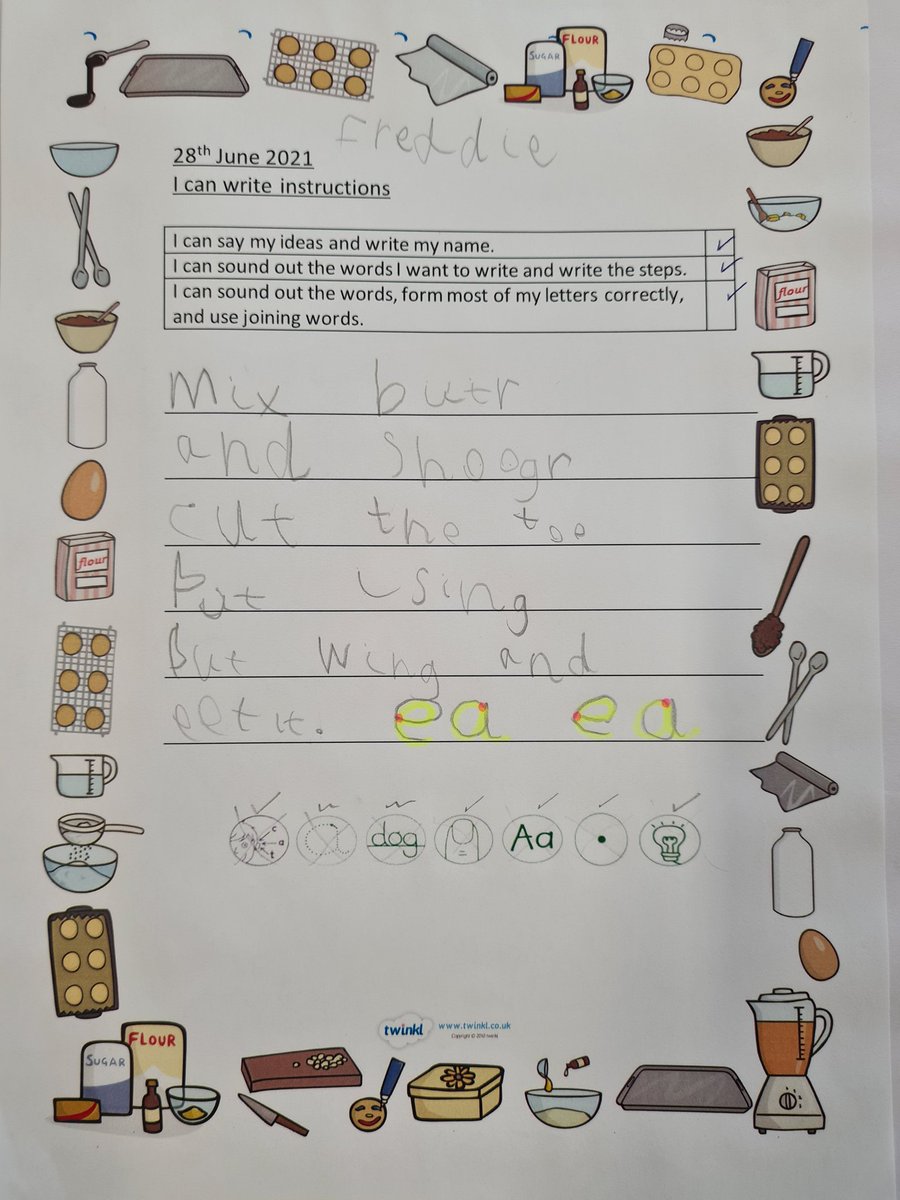 FLOUR
SUGAR
Freddie
28th June 2021
I can write instructions
I can say my ideas and write my name. ✓
I can sound out the words I want to write and write the steps. ✓
I can sound out the words, form most of my letters correctly, ✓
and use joining words.
flour
Mix butr
and Shoogr
cut the toe
Put ising
But wing and
eet it. ea ea
flour
c
a
t
dog
Aa
twinkl www.twinkl.co.uk
FLOUR
SUGAR